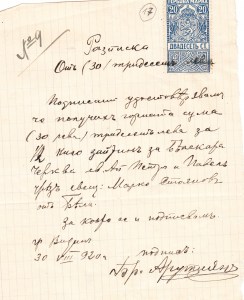 № 9
17
20
Разписка
Отъ (30) тридесеть лева
Подписаний удостоверявамъ
че получихъ горната сума
(30 лева) тридесеть лева за
12 кило за
черква св. Ап. Петръ и Павелъ
чрезъ свещ. Марко Стояновъ
отъ Бѣла.
за което се и подписвамъ.
гр Видинъ
30 VIII 920 г.
подписъ: